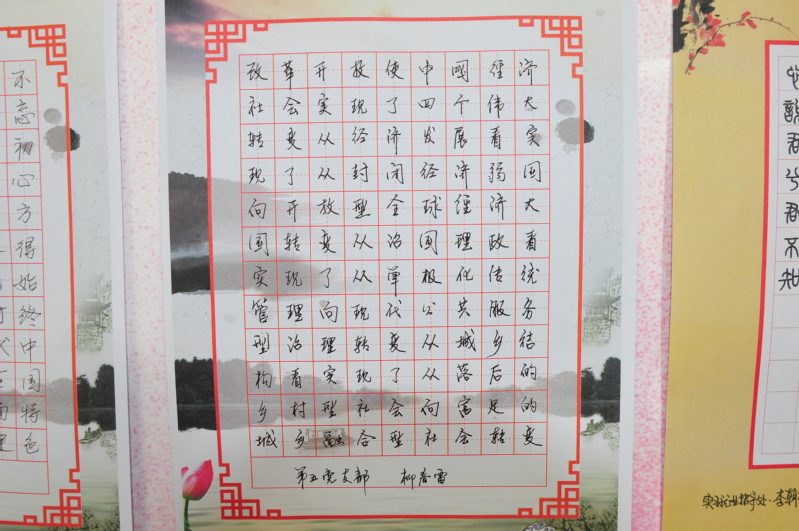 改革开放使中國經济
社会实现了四个伟大
转变从经济发展看实
现了从封闭经济弱国
向开放型全球經济大
国转变从治国理政看
实现了从单极化传统
管理向现代公共服务
型治理转变从城乡结
构看实现了从落后的
乡村型社会向富足的
城乡融合型社会转变
第五党支部 柳春雷
不
忘
初
心
方
得
始
终
中
国
特
色
说
君
兮
君
不
知